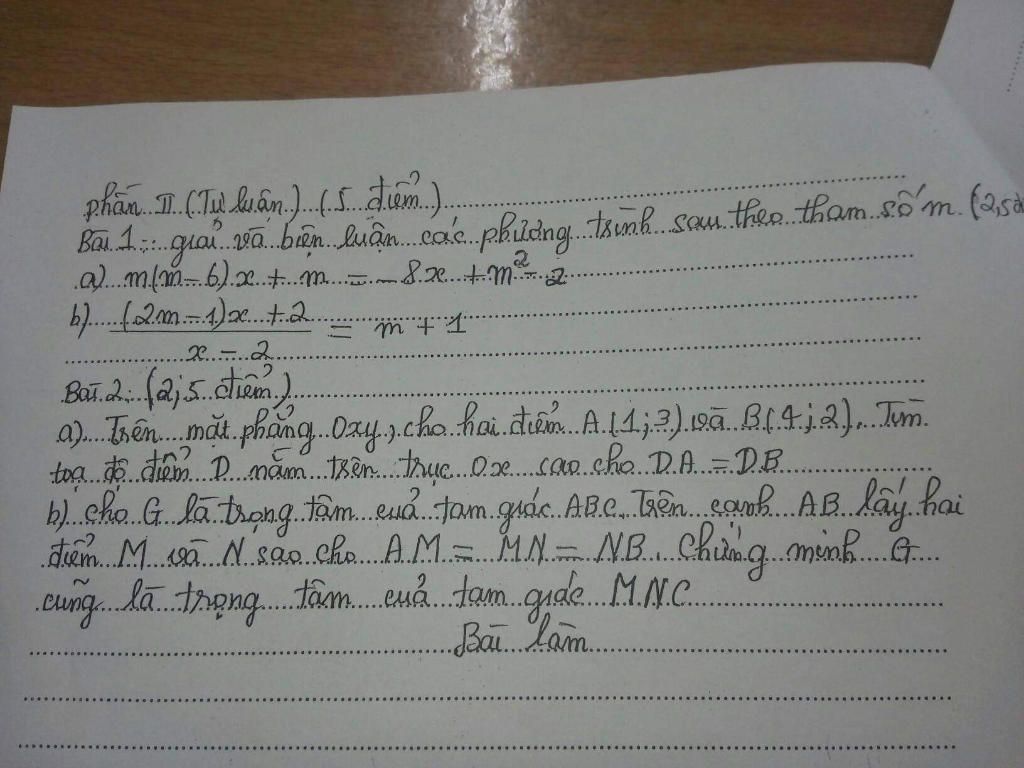 Phần II (Tự luận) (5 điểm)
Bài 1: giải và biện luận các phương trình sau theo tham số m. (2,5đ
a) m(m-6)x + m = -8x + m² - 2
b) ((2m-1)x + 2)/(x - 2) = m + 1
Bài 2: (2,5 điểm)
a) Trên mặt phẳng Oxy, cho hai điểm A(1;3) và B(4;2). Tìm
toạ độ điểm D nằm trên trục Ox sao cho DA = DB
b) cho G là trọng tâm của tam giác ABC. Trên cạnh AB lấy hai
điểm M và N sao cho AM = MN = NB. Chứng minh G
cũng là trọng tâm của tam giác MNC
Bài làm